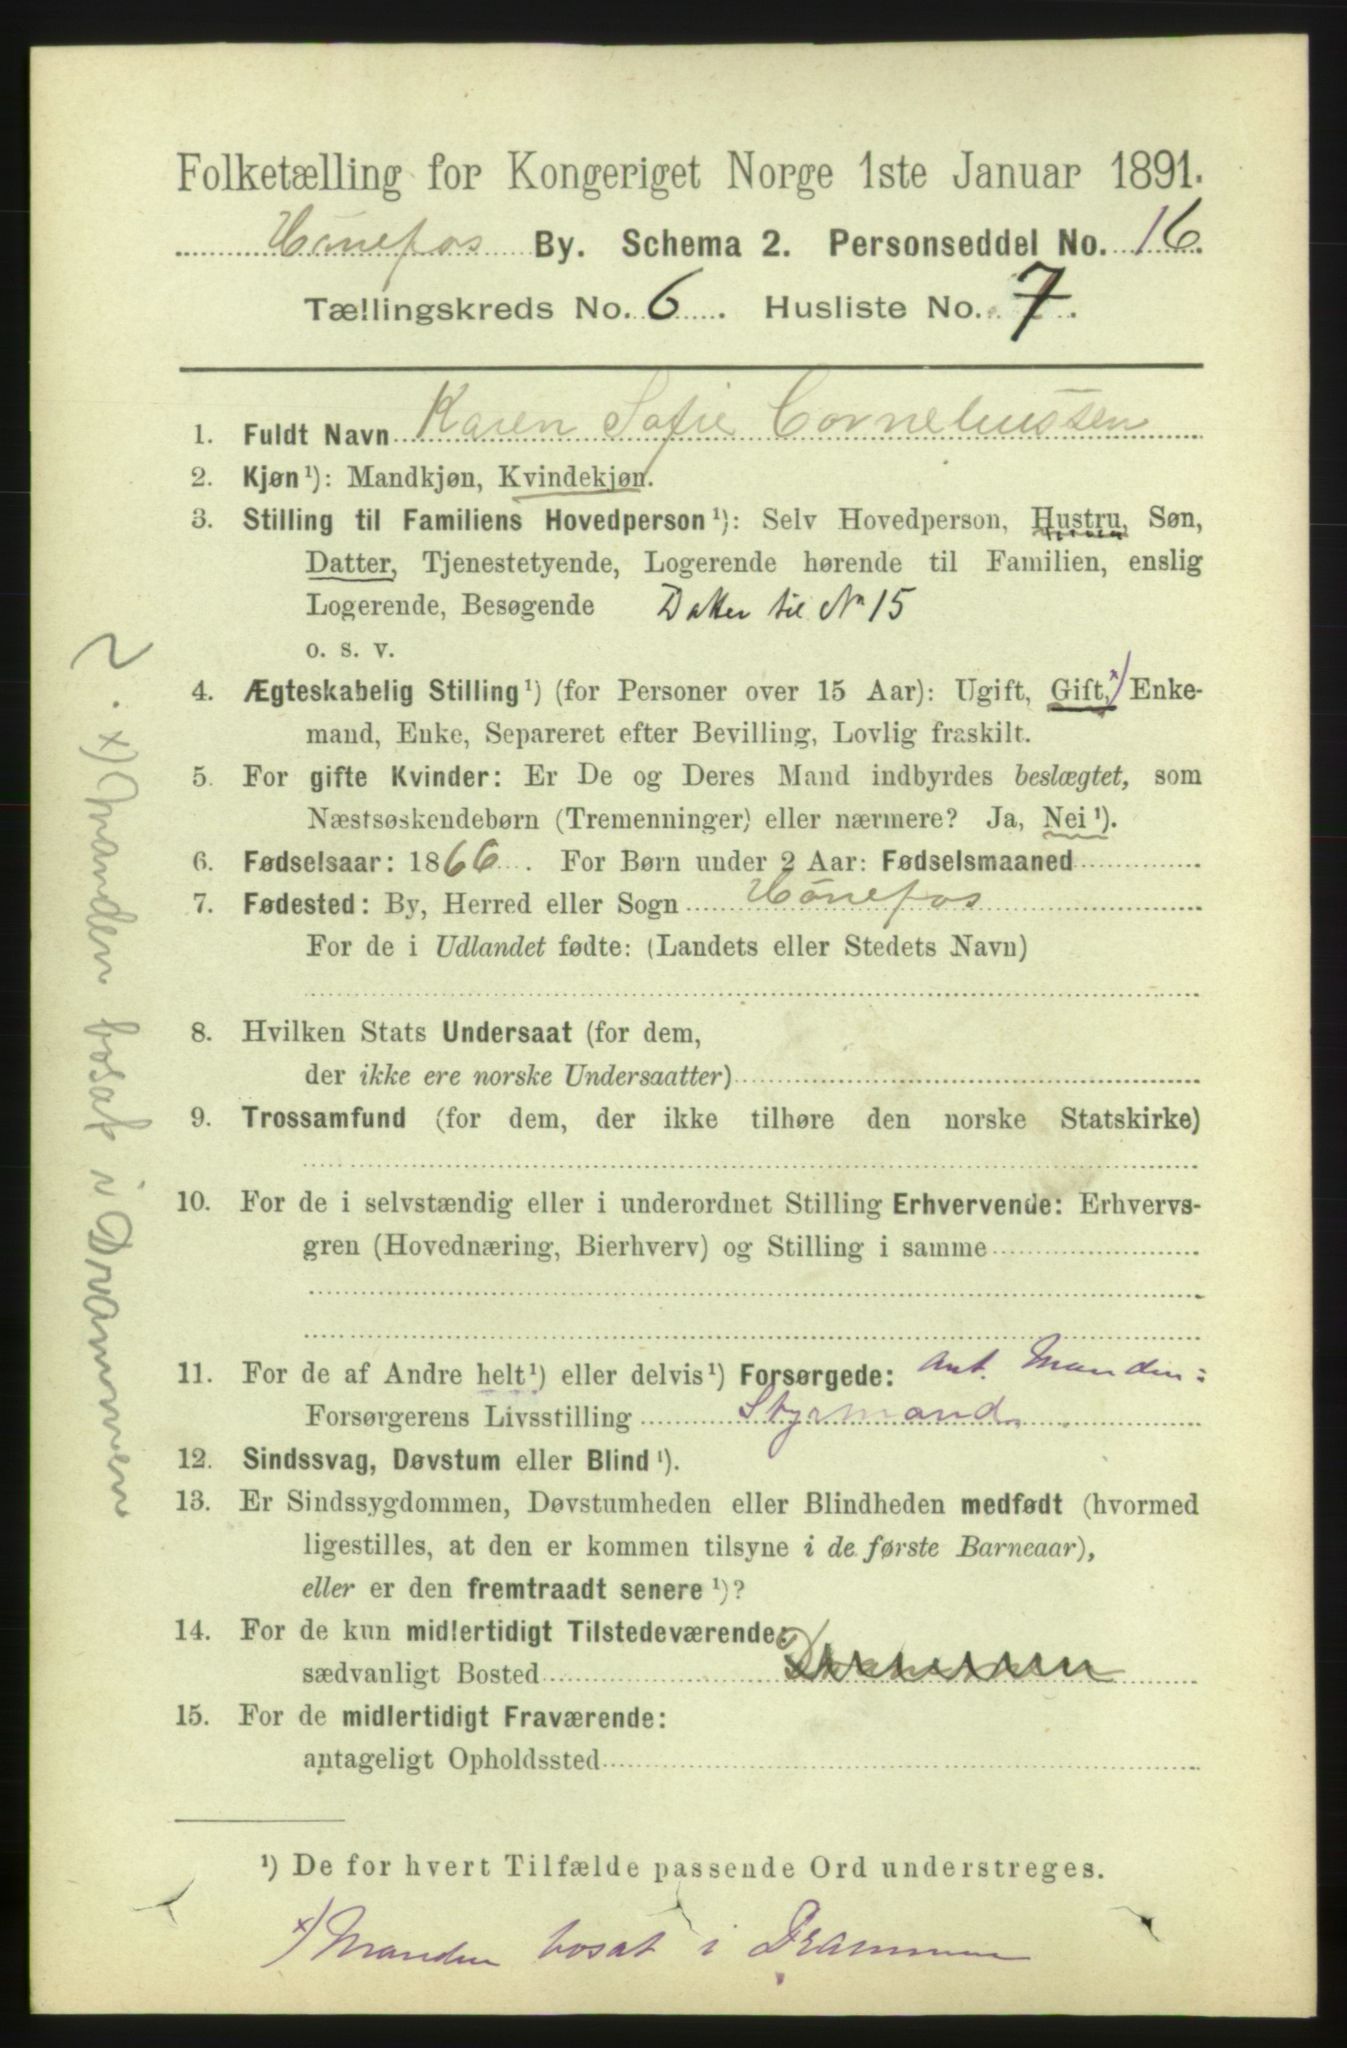 Folketælling for Kongeriget Norge 1ste Januar 1891.
Hönefos By. Schema 2. Personseddel No. 16.
Tællingskreds No. 6. Husliste No. 7.
1. Fuldt Navn Karen Sofie Corneliussen
2. Kjøn¹): Mandkjøn, Kvindekjøn.
3. Stilling til Familiens Hovedperson¹): Selv Hovedperson, Hustru, Søn,
Datter, Tjenestetyende, Logerende hørende til Familien, enslig
Logerende, Besøgende Datter til No 15
o. s. v.
4. Ægteskabelig Stilling¹) (for Personer over 15 Aar): Ugift, Gift,x) Enke-
mand, Enke, Separeret efter Bevilling, Lovlig fraskilt.
5. For gifte Kvinder: Er De og Deres Mand indbyrdes beslægtet, som
Næstsøskendebørn (Tremenninger) eller nærmere? Ja, Nei¹).
6. Fødselsaar: 1866. For Børn under 2 Aar: Fødselsmaaned
7. Fødested: By, Herred eller Sogn Hönefos
For de i Udlandet fødte: (Landets eller Stedets Navn)
8. Hvilken Stats Undersaat (for dem,
der ikke ere norske Undersaatter)
9. Trossamfund (for dem, der ikke tilhøre den norske Statskirke)
10. For de i selvstændig eller i underordnet Stilling Erhvervende: Erhvervs-
gren (Hovednæring, Bierhverv) og Stilling i samme
11. For de af Andre helt¹) eller delvis¹) Forsørgede: Ant. Manden:
Forsørgerens Livsstilling Styrmand
12. Sindssvag, Døvstum eller Blind¹).
13. Er Sindssygdommen, Døvstumheden eller Blindheden medfødt (hvormed
ligestilles, at den er kommen tilsyne i de første Barneaar),
eller er den fremtraadt senere¹)?
14. For de kun midlertidigt Tilstedeværende:
sædvanligt Bosted Drammen
15. For de midlertidigt Fraværende:
antageligt Opholdssted
¹) De for hvert Tilfælde passende Ord understreges.
x) Manden bosat i Drammen
2. x) Manden bosat i Drammen